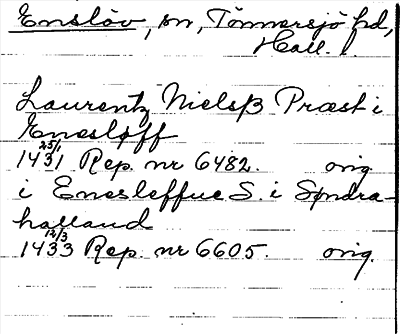 Enslöv, sn, Tönnersjö hd,
Hall. l.
Laurentz Nielsß Præst i
Enesløff
1431 25/1 Rep. nr 6482. orig
i Enesleffue S. i Søndra-
halland
1433 12/3 Rep. nr 6605. orig.